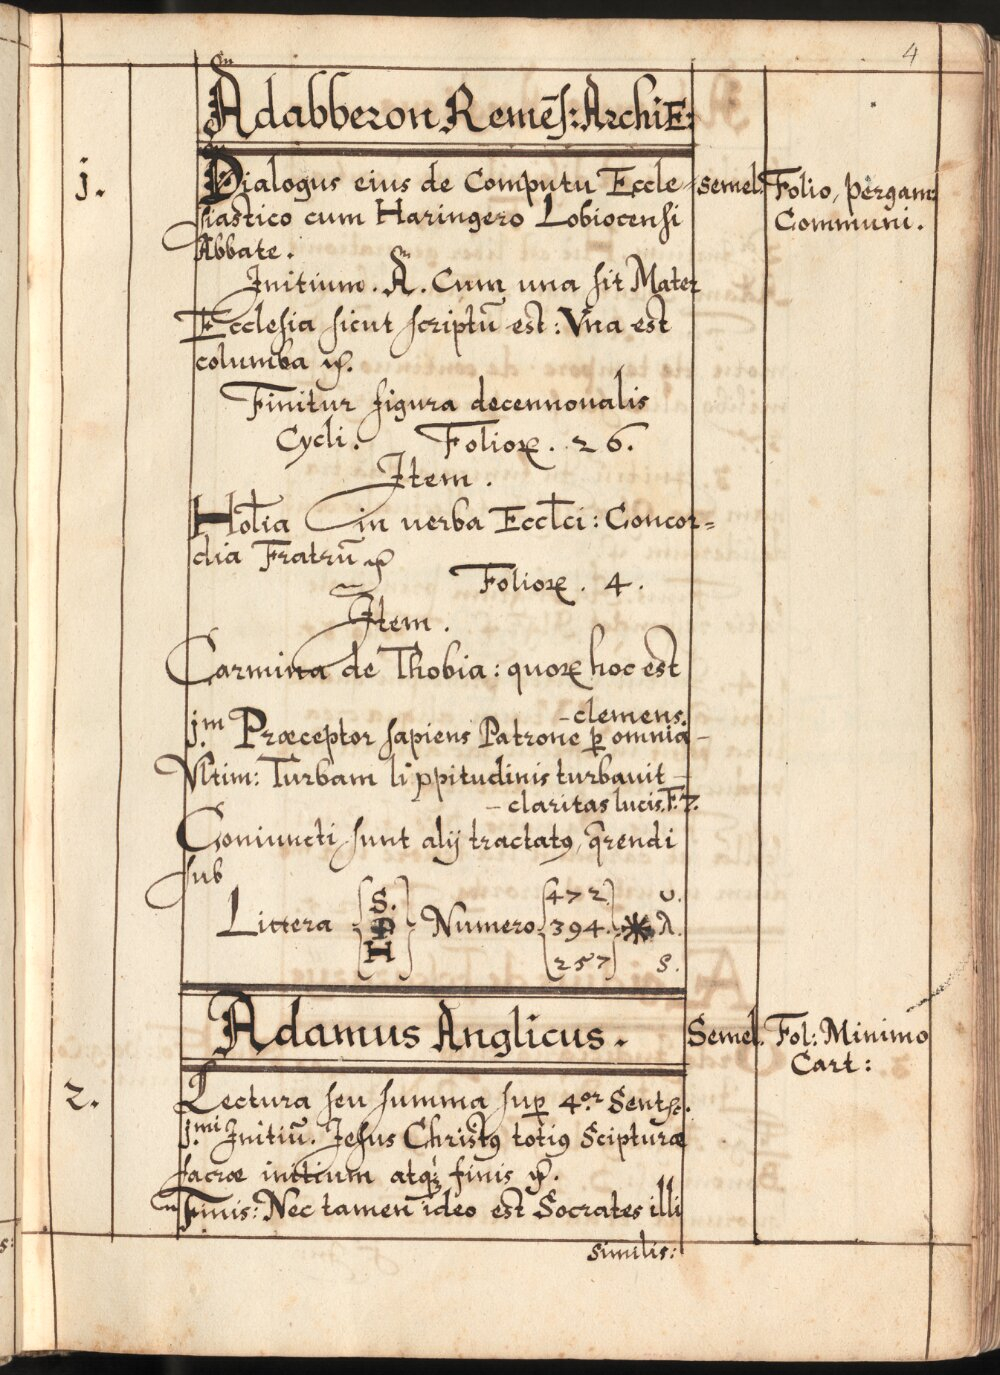 4
Adabberon Remēs: ArchiE:
j. Dialogus eius de Computu Eccle= semel. Folio, pergam:
siastico cum Haringero Lobiocensi Communi.
Abbate.
Initium. A. Cum una sit Mater
Ecclesia sicut scriptū est: Vna est
columba
Finitur figura decennoualis
Cycli. Folioꝝ. 26.
Item.
Hoīlia in uerba Ecclēci: Concor=
dia Fratrū
Folioꝝ. 4.
Item.
Carmina de Thobia: quoꝝ hoc est
-clemens.
j.m Præceptor sapiens Patrone ꝑ omnia-
Vltim: Turbam lippitudinis turbauit-
-claritas lucis. F. 7.
Coniuncti sunt alij tractatꝰ, q̄rendi
sub
Littera {S. D H} Numero {472. 394. 257} * υ. λ. s.
Adamus Anglicus. Semel. Fol: Minimo
Cart:
2. Lectura seu summa suꝑ 4.or Sent
j.mi Initiū. Jesus Christꝰ totiꝰ Scipturæ
sacræ initium atqꝫ finis
Finis: Nec tamen ideo est Socrates illi
similis:
s: